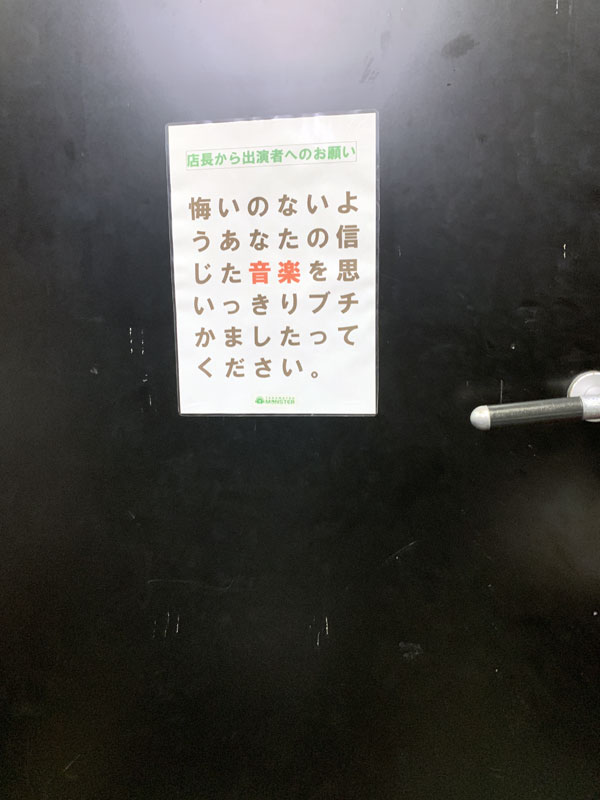 店長から出演者へのお願い
悔いのないよ
うあなたの信
じた音楽を思
いっきりブチ
かましたって
ください。
MONSTER